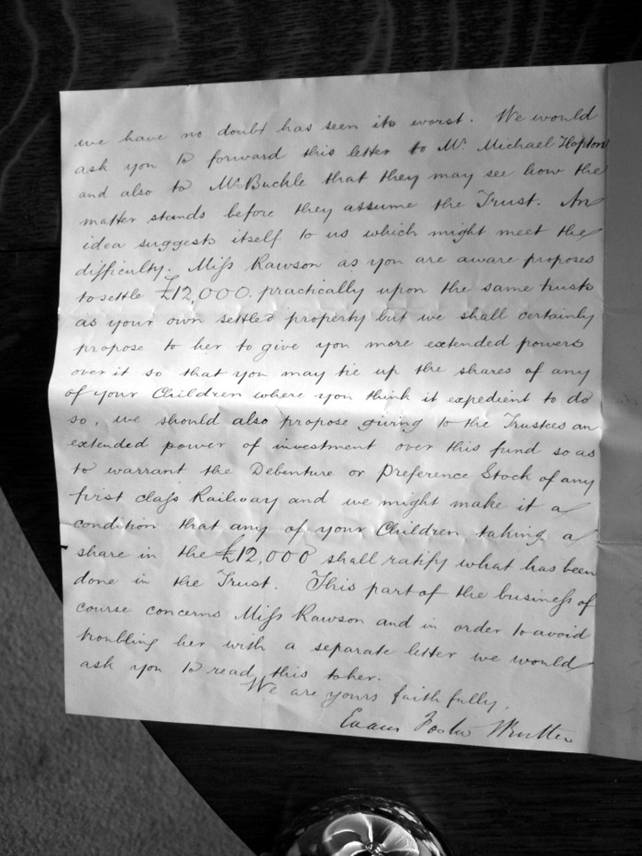 we have no doubt has seen its worst. We would
ask you to forward this letter to Mr. Michael Hopton
and also to Mr Buckle that they may see how the
matter stands before they assume the Trust. An
idea suggests itself to us which might meet the
difficulty. Miss Rawson as you are aware proposes
to settle £12,000. practically upon the same trusts
as your own settled property but we shall certainly
propose to her to give you more extended powers
over it so that you may tie up the shares of any
of your Children where you think it expedient to do
so, we should also propose giving to the Trustees an
extended power of investment over this fund so as
to warrant the Debenture or Preference Stock of any
first class Railway and we might make it a
condition that any of your Children taking a
share in the £12,000 shall ratify what has been
done in the Trust. This part of the business of
course concerns Miss Rawson and in order to avoid
troubling her with a separate letter we would
ask you to read this to her.
We are yours faithfully,